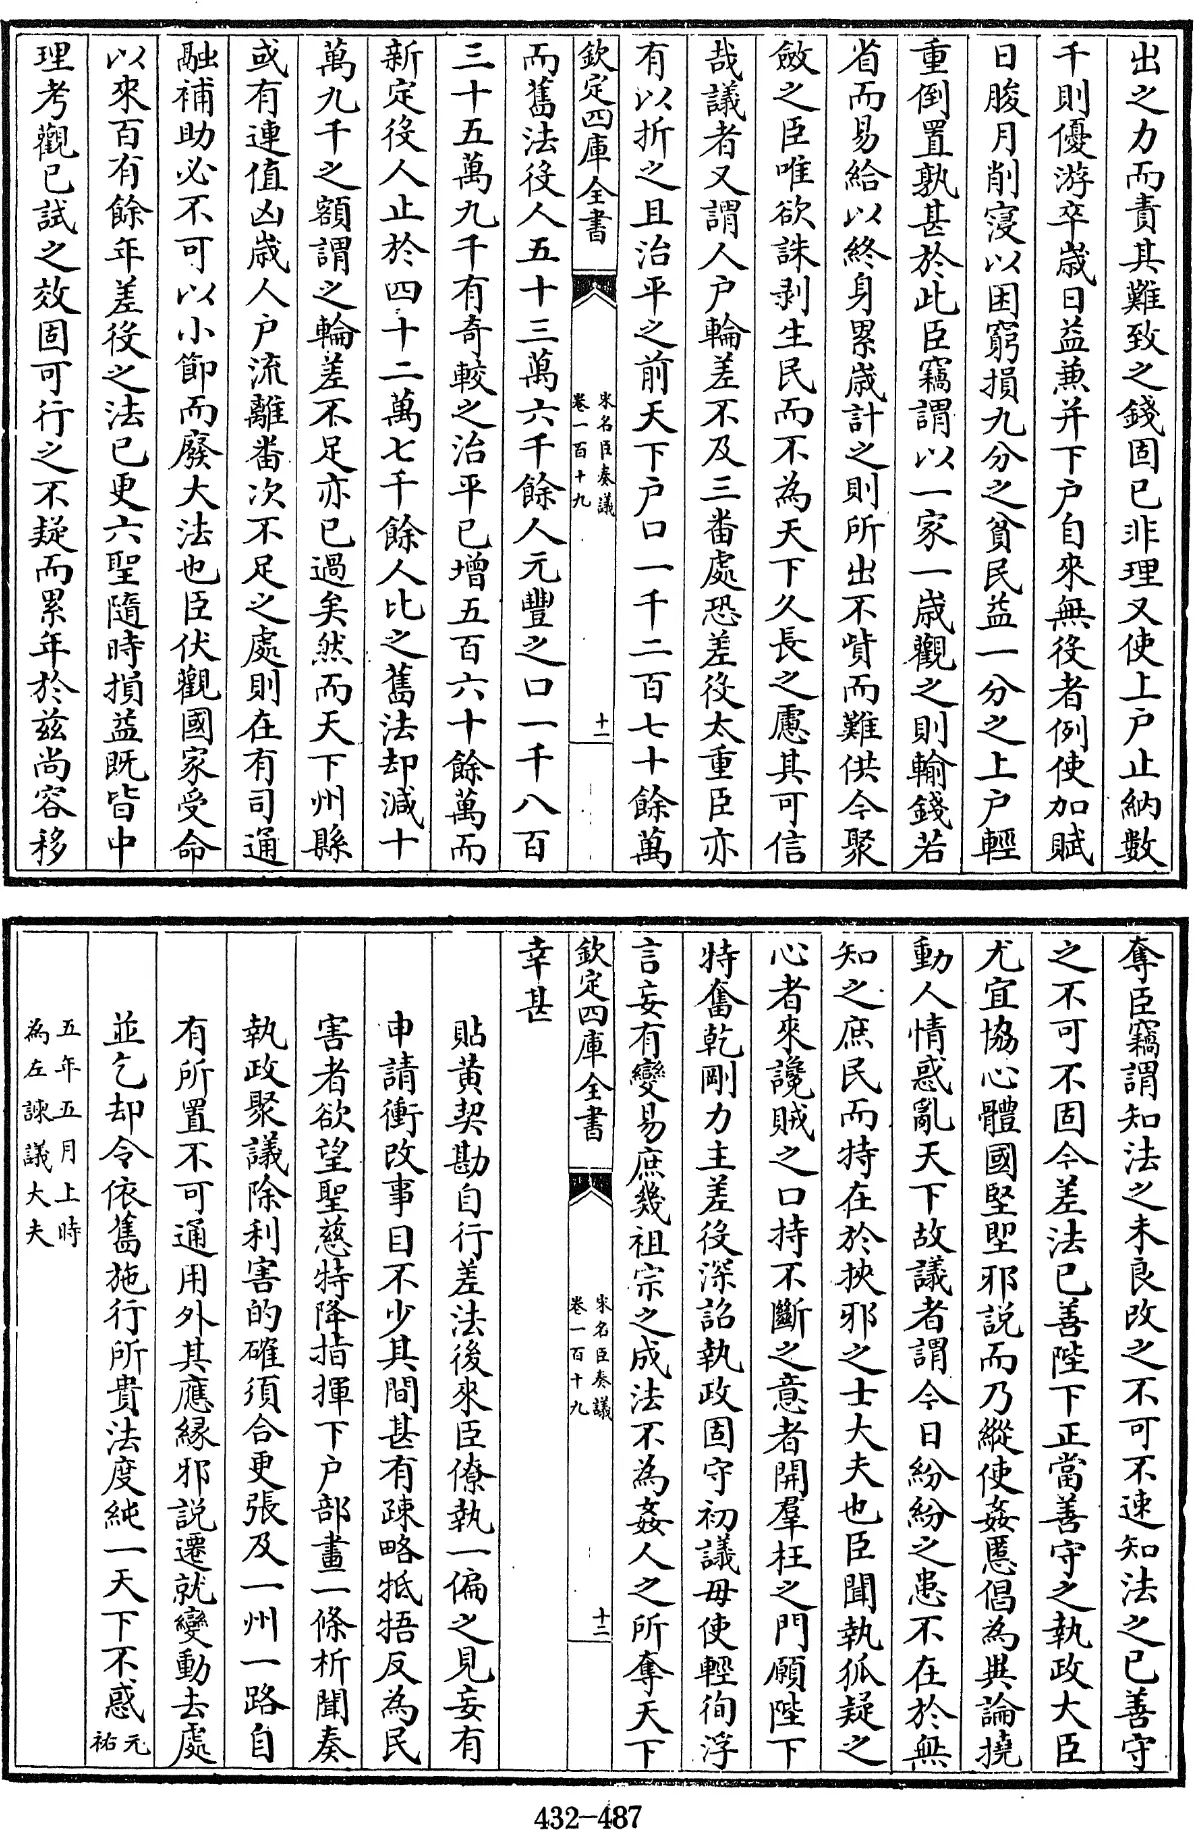 出之力而責其難致之錢固已非理又使上户止納數
千則優游卒歳日益兼并下户自來無役者例使加賦
日朘月削寖以困窮損九分之貧民益一分之上户輕
重倒置孰甚於此臣竊謂以一家一歳觀之則輸錢若
省而易給以終身累歳計之則所出不貲而難供今聚
斂之臣唯欲誅剥生民而不為天下久長之慮其可信
哉議者又謂人户輪差不及三番處恐差役太重臣亦
有以折之且治平之前天下户口一千二百七十餘萬
欽定四庫全書
宋名臣奏議
卷一百十九
十一
而舊法役人五十三萬六千餘人元豐之口一千八百
三十五萬九千有奇較之治平已增五百六十餘萬而
新定役人止於四十二萬七千餘人比之舊法却減十
萬九千之額謂之輪差不足亦已過矣然而天下州縣
或有連值凶歳人户流離番次不足之處則在有司通
融補助必不可以小節而廢大法也臣伏觀國家受命
以來百有餘年差役之法已更六聖隨時損益既皆中
理考觀已試之效固可行之不疑而累年於兹尚容移
奪臣竊謂知法之未良改之不可不速知法之已善守
之不可不固今差法已善陛下正當善守之執政大臣
尤宜協心體國堅塈邪説而乃縱使姦慝倡為異論撓
動人情惑亂天下故議者謂今日紛紛之患不在於無
知之庶民而特在於挾邪之士大夫也臣聞執狐疑之
心者來讒賊之口持不斷之意者開羣枉之門願陛下
特奮乾剛力主差役深詔執政固守初議毋使輕徇浮
言妄有變易庶幾祖宗之成法不為姦人之所奪天下
欽定四庫全書
宋名臣奏議
卷一百十九
十二
幸甚
貼黄契勘自行差法後來臣僚執一偏之見妄有
申請衝改事目不少其間甚有疎略牴牾反為民
害者欲望聖慈特降指揮下户部畫一條析聞奏
執政聚議除利害的確須合更張及一州一路自
有所置不可通用外其應縁邪説遷就變動去處
並乞却令依舊施行所貴法度純一天下不惑元祐
五年五月上時
為左諫議大夫
432-487